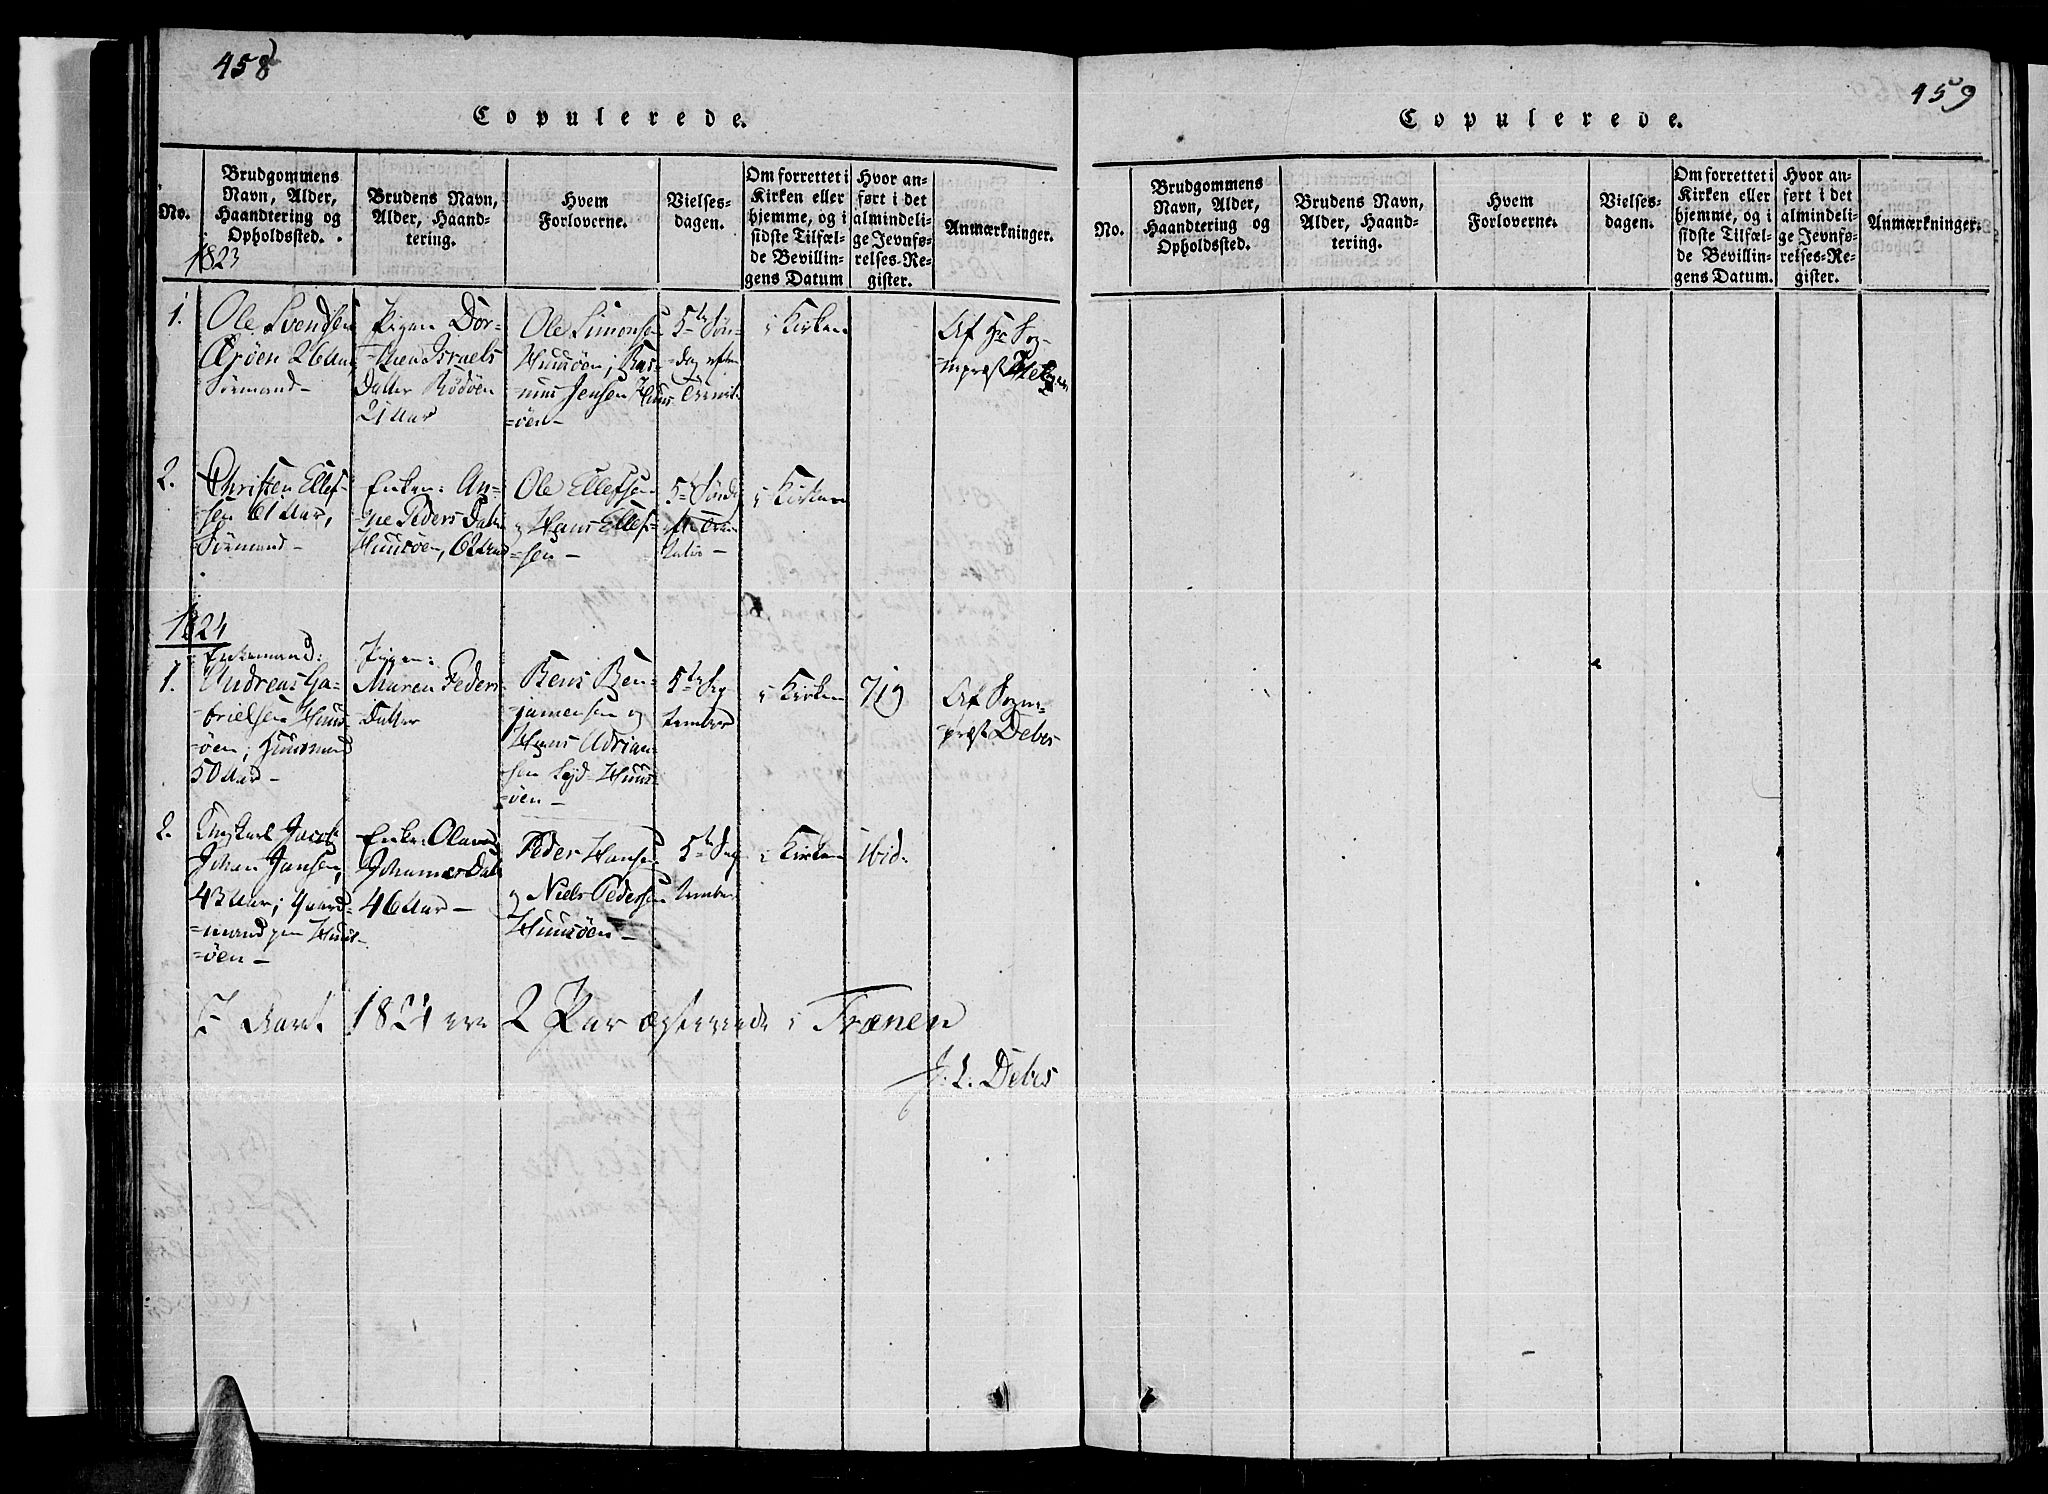 458
Copulerede.
No.
Brudgommens
Navn, Alder,
Haandtering og
Opholdssted.
Brudens Navn,
Alder, Haand-
tering.
Hvem
Forloverne.
Vielses-
dagen.
Om forrettet i
Kirken eller
hjemme, og i
sidste Tilfæl-
de Bevillin-
gens Datum
Hvor an-
ført i det
almindeli-
ge Jevnfø-
relses-Re-
gister.
Anmærkninger.
1823
1.
Ole Svendsen
26 Aar
Pigen Dor-
Israels
Datter Rödöen
21 Aar
Ole Simonsen
Huusöen; Ras-
mus Jensen Huus-
=öen-
5te Søn-
dag efter
i Kirken
Af Hr Sog-
nepræst
2.
Christen Ellef-
sen 61 Aar,
Enken: An-
ne Peders Datter
Huusöen, 62 Aar
Ole Ellefsen
og Hans Ellef-
=sen-
5te Sønd.
i Kirken
1824
1.
Enkemand:
Andreas Ga-
brielsen Huus-
öen; Huusmand
50 Aar-
Pigen:
Maren Peders
Datter
Bens Ben-
jamensen og
Hans Adrian-
sen Huus-
=öen-
5te Sep
tember
i Kirken
719
Af Sogne-
præst Debes
2.
Ungkarl Jacob
Johan Jansen,
43 Aar; Gaard-
=mand paa Huus-
=öen-
Enke:
Johannes Datter
46 Aar-
Peder Hansen
og Niels Pedersen
Huusöen-
5te Sep
tember
i Kirken
ibid.
I Aaret 1824 ere 2 Par ægteviede i Trænen
J. L. Debes
459
Copulerede.
No.
Brudgommens
Navn, Alder,
Haandtering og
Opholdssted.
Brudens Navn,
Alder, Haand-
tering.
Hvem
Forloverne.
Vielses-
dagen.
Om forrettet i
Kirken eller
hjemme, og i
sidste Tilfæl-
de Bevillin-
gens Datum.
Hvor an-
ført i det
almindeli-
ge Jevnfø-
relses-Re-
gister.
Anmærkninger.